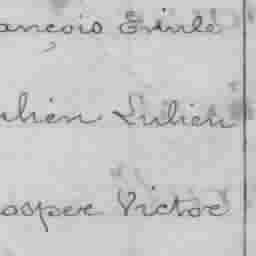 ançois Emile
ulien Lulien
osper Victor